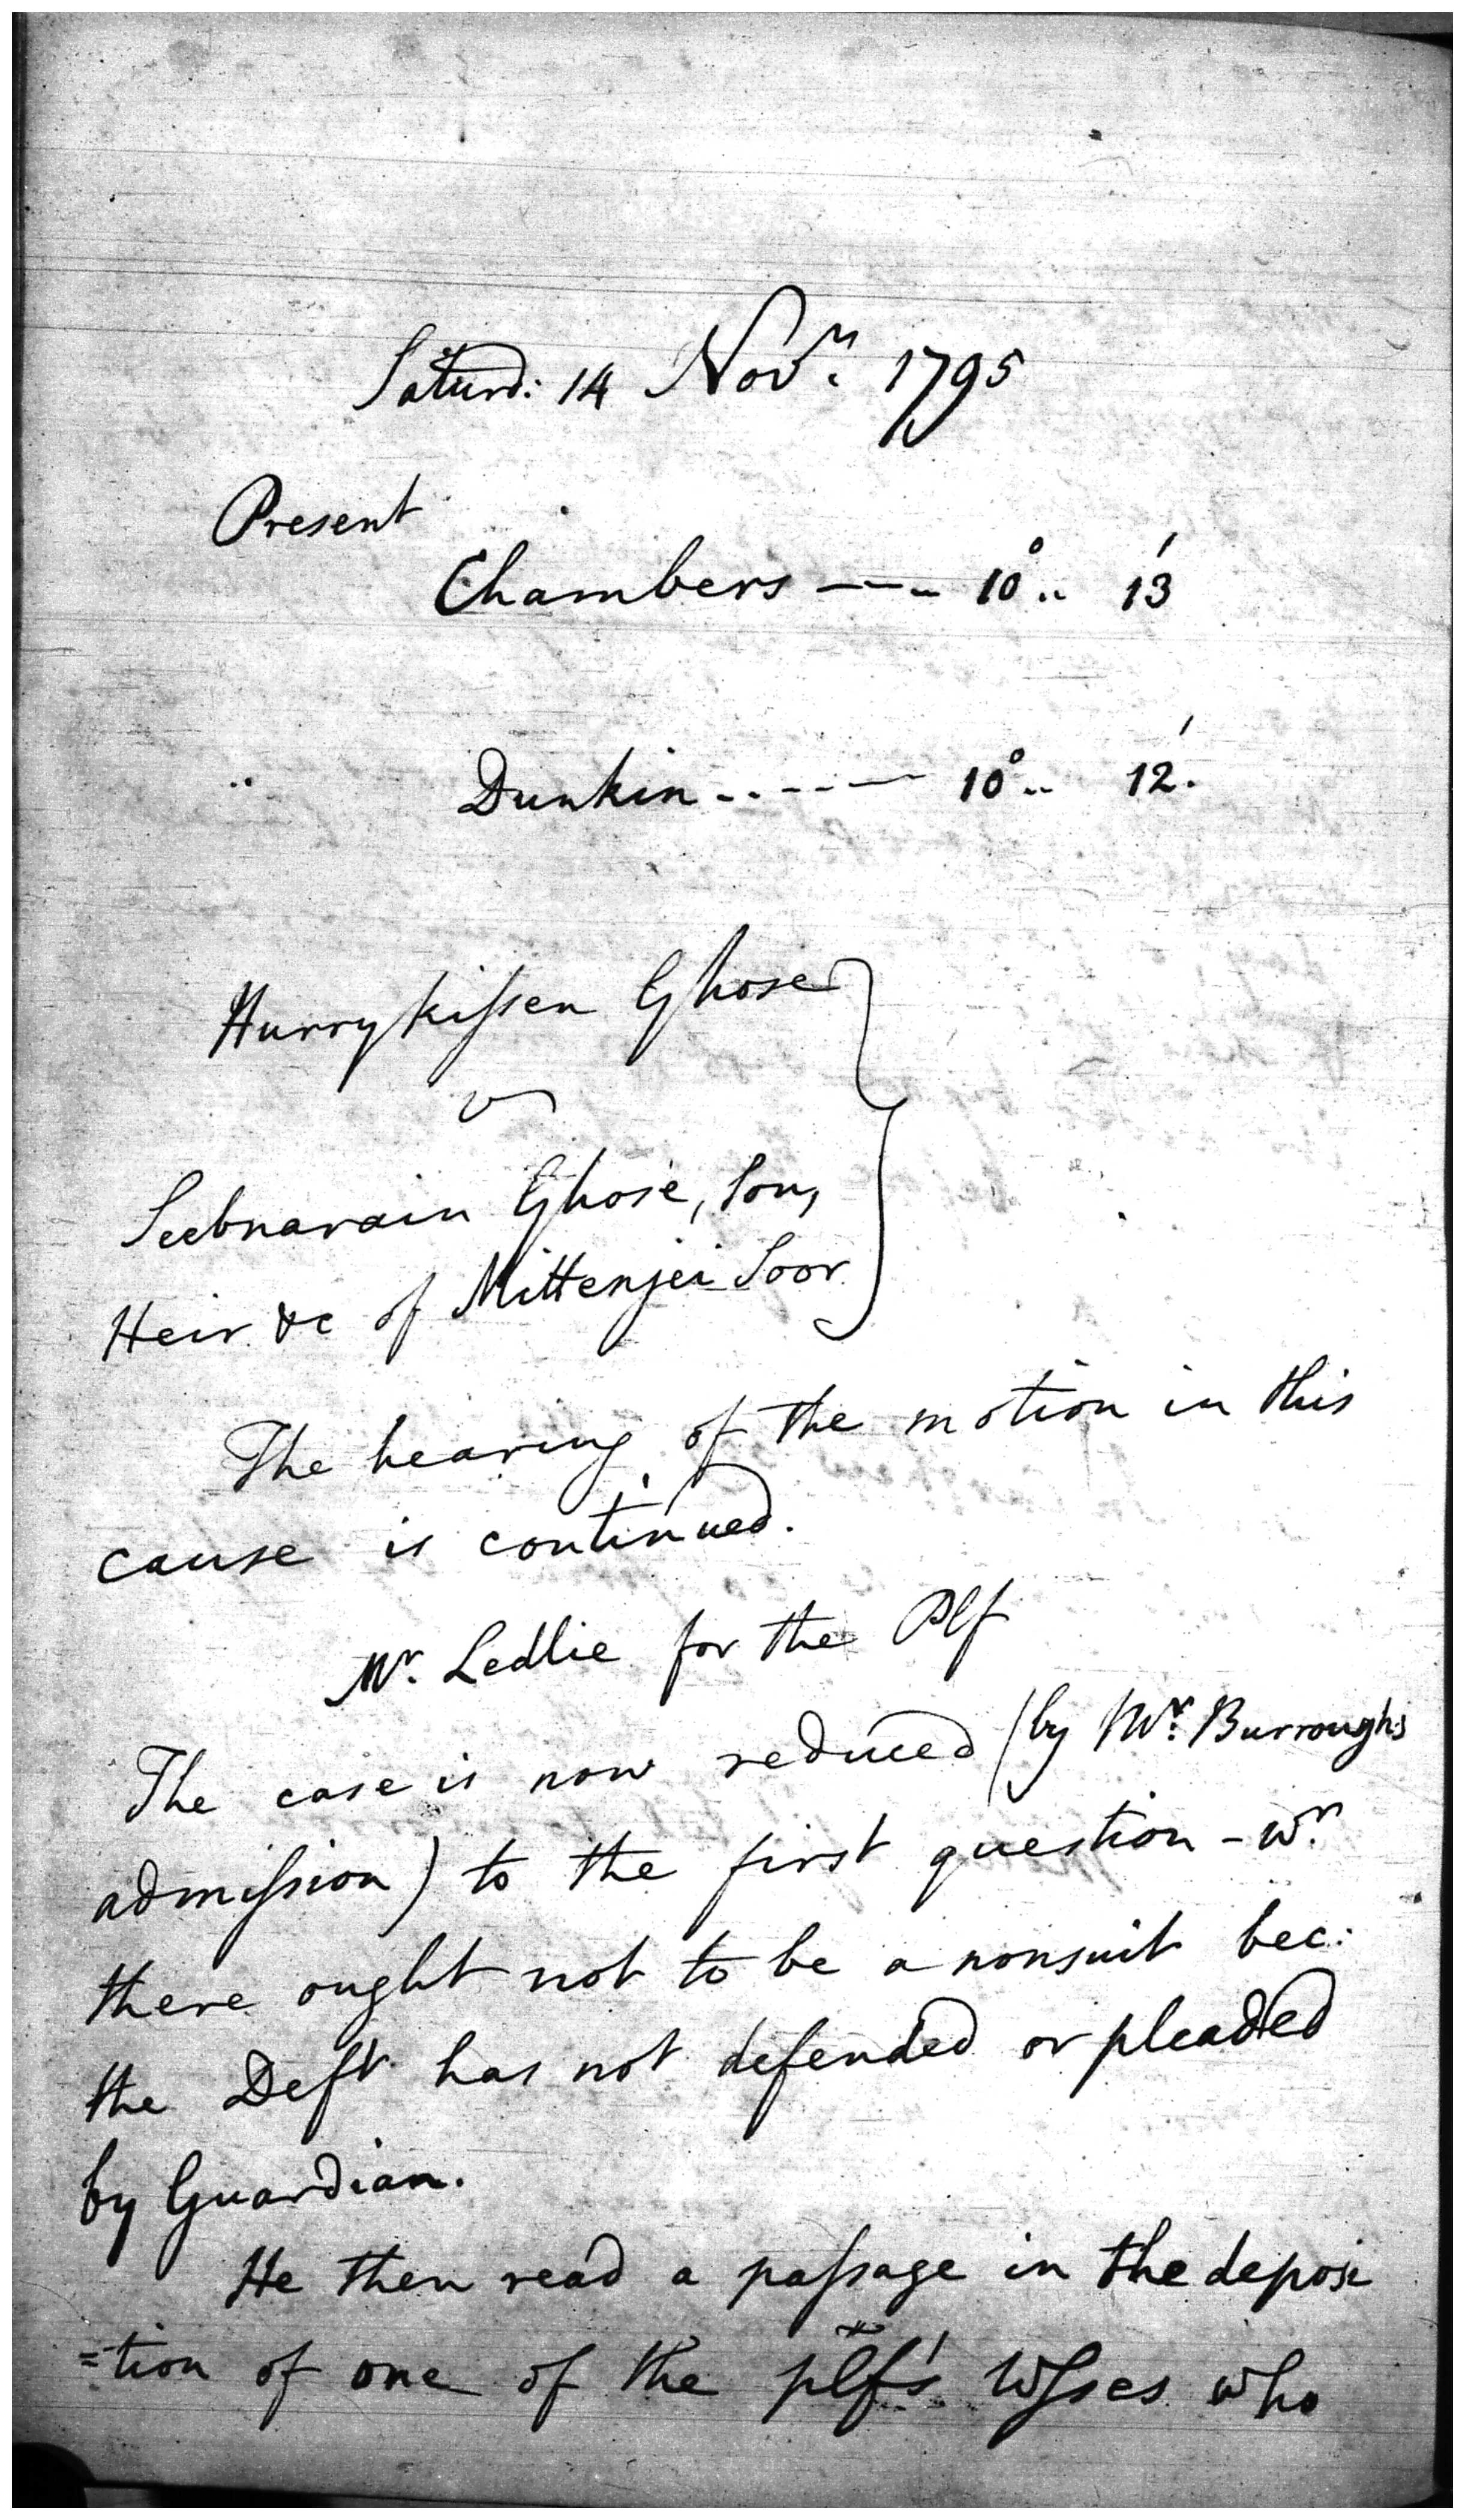 Saturd: 14 Novr. 1795
Present
Chambers ——— 10° .. 13'
Dunkin ..---— 10° .. 12'.
Hurrykissen Ghose
v
Seebnarain Ghose, Son,
Heir &c of Mittenjei Soor
The hearing of the motion in this
cause is continued.
Mr. Ledlie for the Plf
The case is now reduced (by Mr. Burroughs
admission) to the first question - wr.
there ought not to be a nonsuit bec:
the Deft. has not defended or pleaded
by Guardian.
He then read a passage in the deposi
=tion of one of the plf's Wsses who